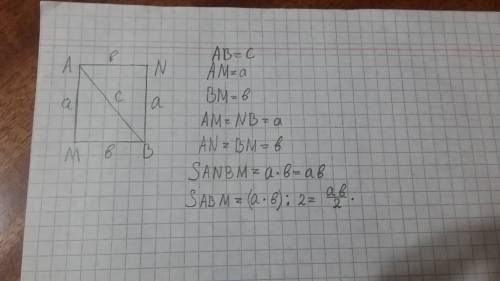 в
A N
a c a
M в B
AB = c
AM = a
BM = в
AM = NB = a
AN = BM = в
SANBM = a · в = aв
SABM = (a · в) : 2 = aв/2.